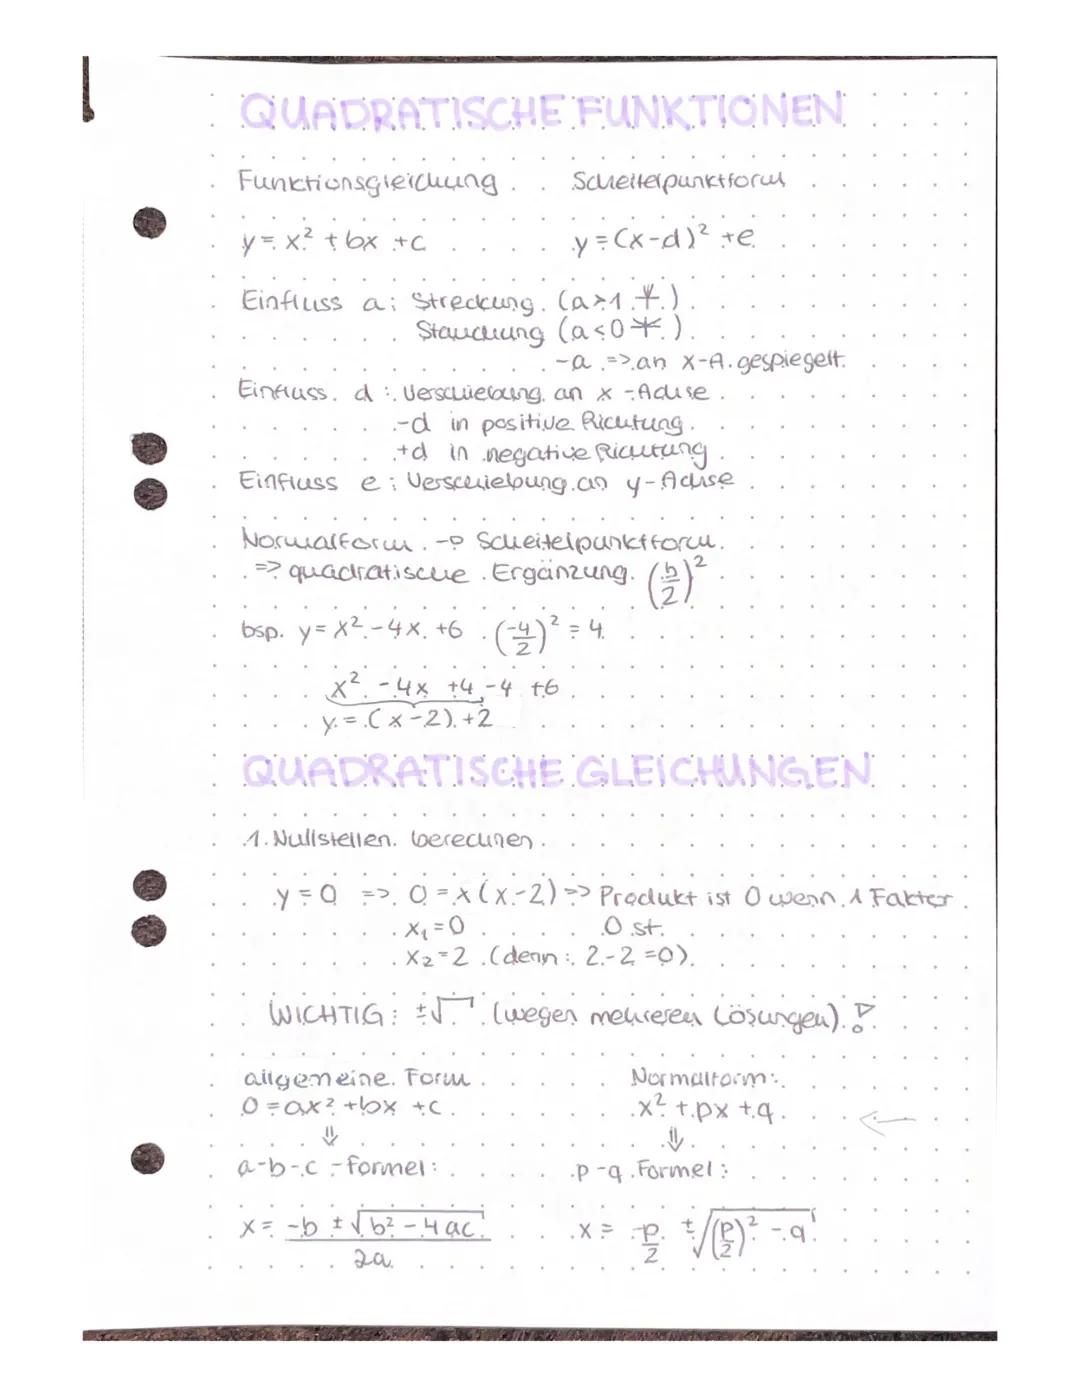 QUADRATISCHE FUNKTIONEN
Funktionsgleichung Scheitelpunktform
y = x² + bx + c y = (x-d)² + e
Einfluss a: Streckung (a>1 )
Stauchung (a<0 )
-a => an x-A. gespiegelt
Einfluss d: Verschiebung an x-Achse
-d in positive Richtung
+d in negative Richtung
Einfluss e: Verschiebung an y-Achse
Normalform → Scheitelpunktform
=> quadratische Ergänzung (b/2)²
bsp. y = x² - 4x + 6 (-4/2)² = 4
x² - 4x + 4 - 4 + 6
y = (x-2) + 2
QUADRATISCHE GLEICHUNGEN
1. Nullstellen berechnen
y = 0 => 0 = x(x-2) => Produkt ist 0 wenn 1 Faktor
x₁ = 0 0 st.
x₂ = 2 (denn: 2-2 = 0)
WICHTIG: ±√ (wegen mehreren Lösungen)!
allgemeine Form Normalform:
0 = ax² + bx + c x² + px + q ←
⇓ ⇓
a-b-c-Formel: p-q Formel:
x = (-b ± √(b² - 4ac))/2a x = -p/2 ± √((p/2)² - q)